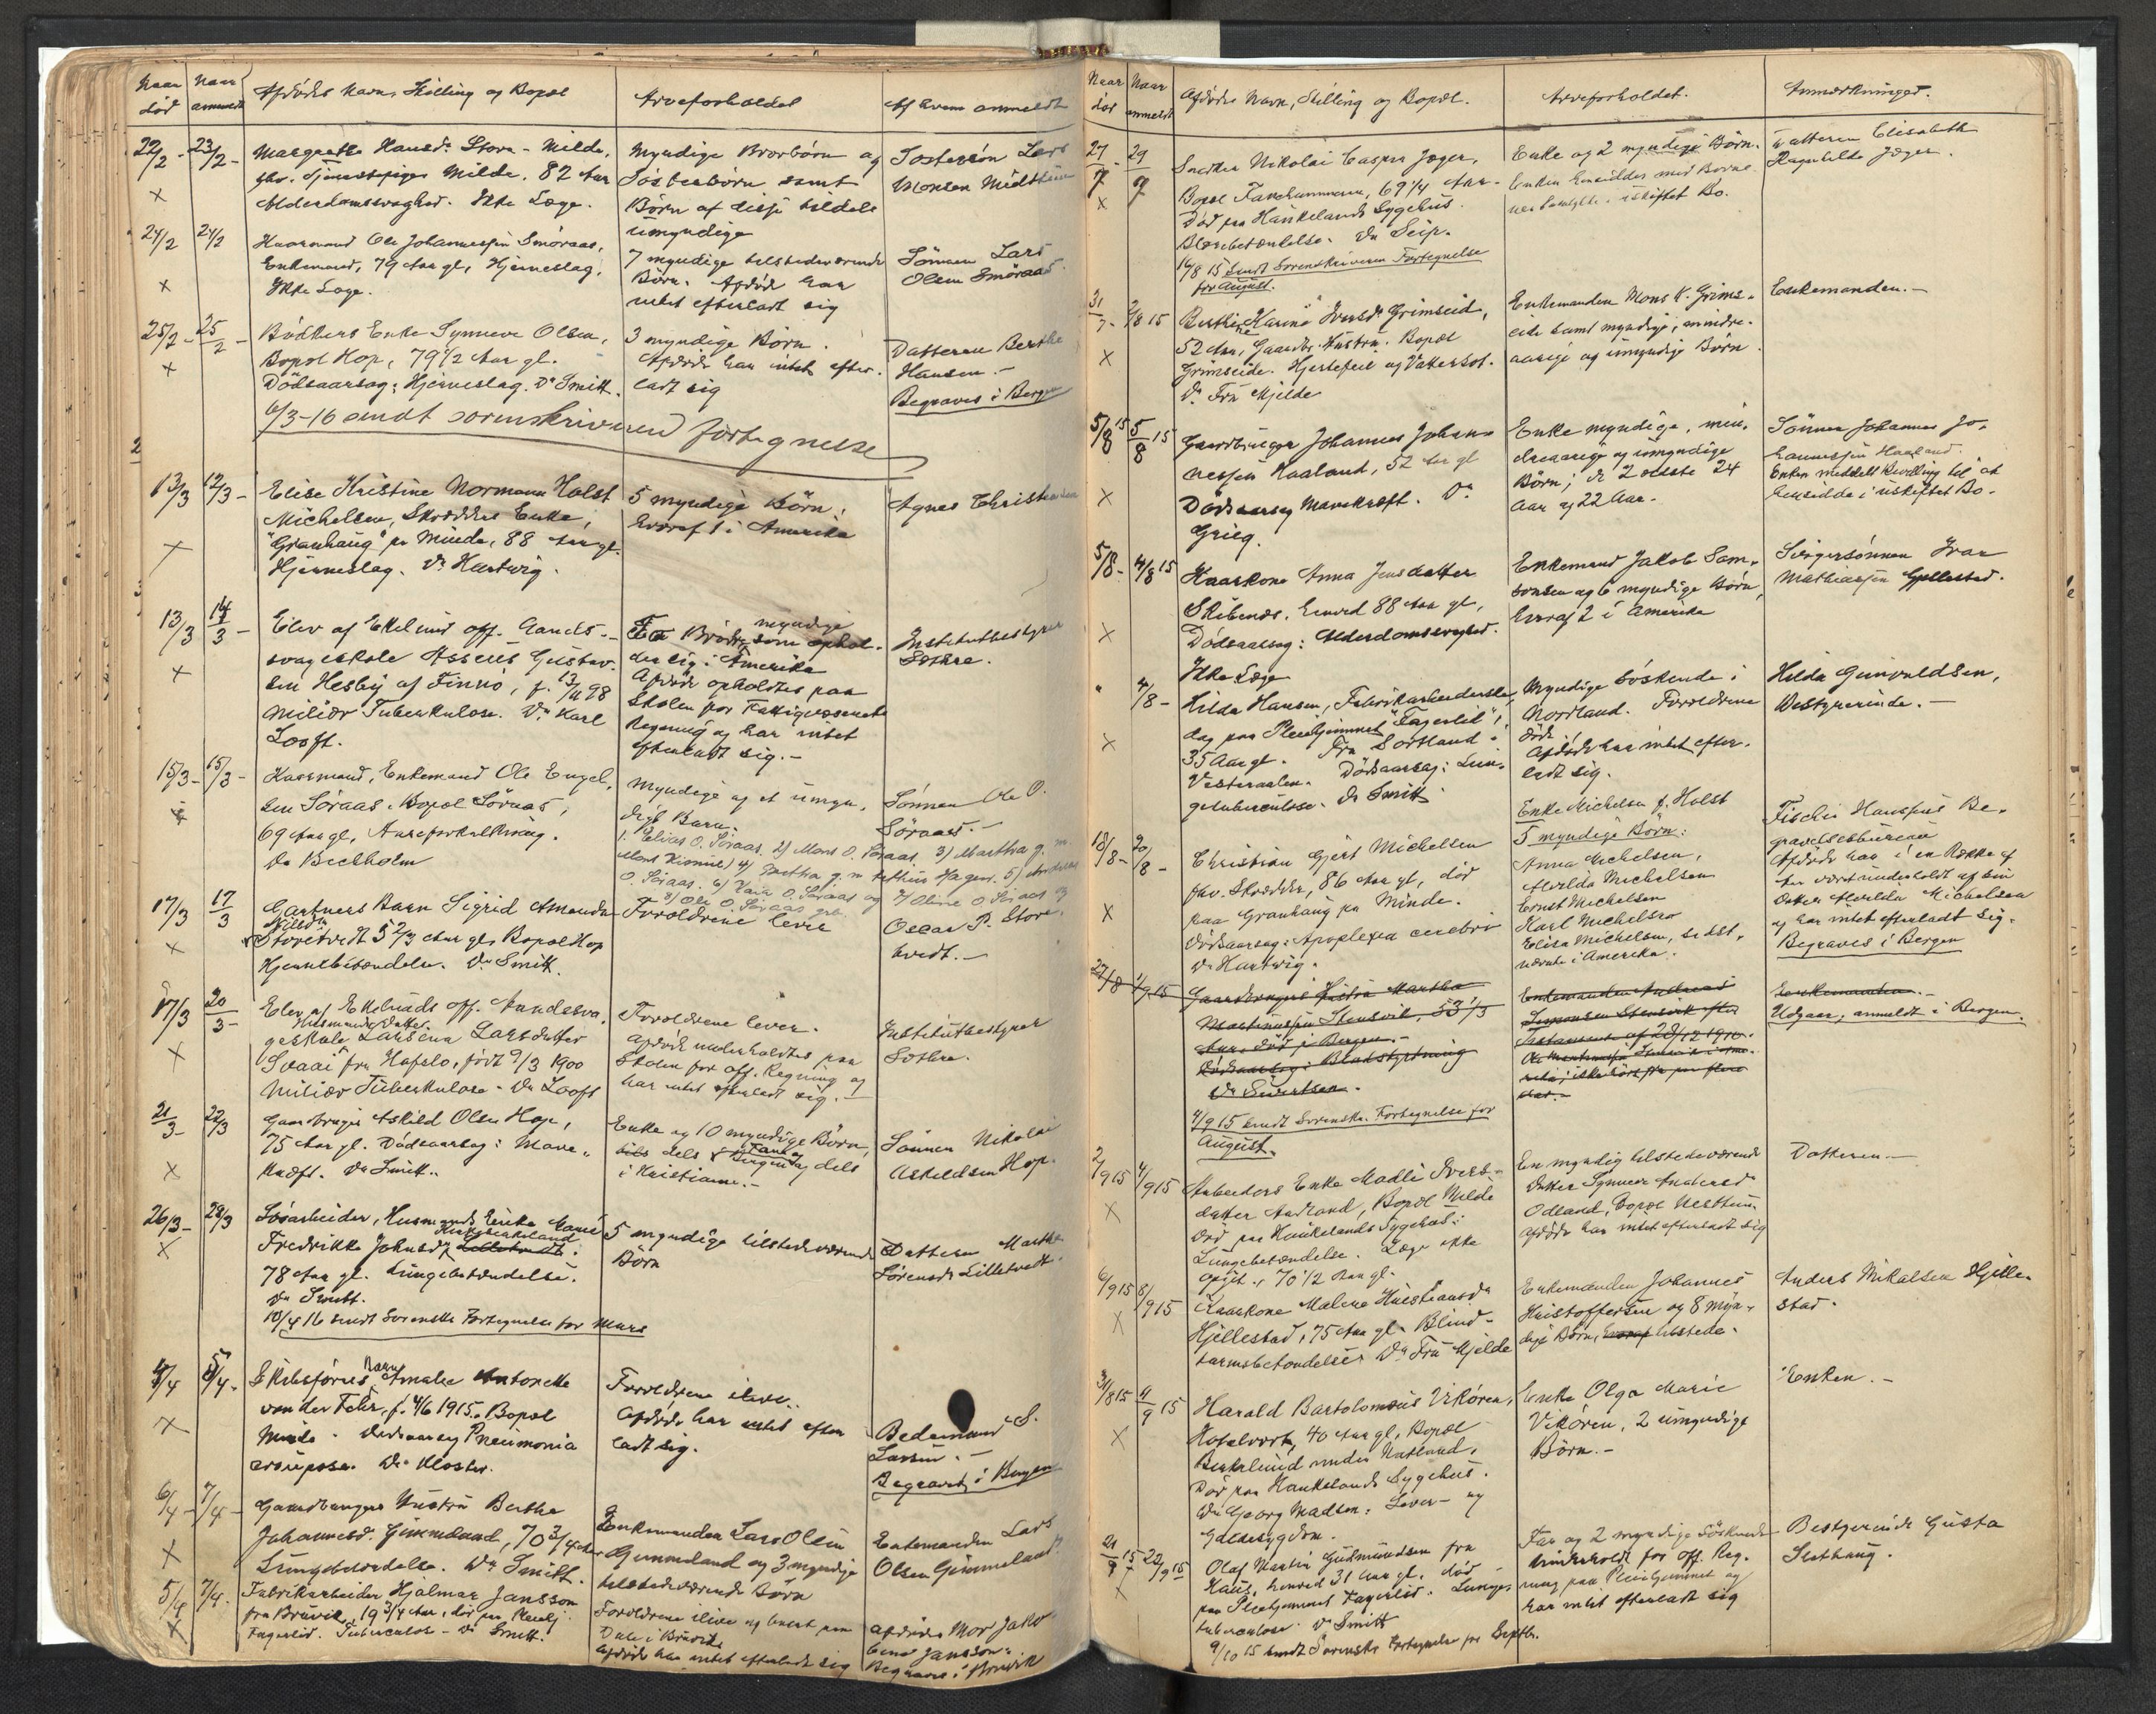 Naar død
Naar anmeldt
Afdødes Navn, Stilling og Bopæl
Arveforholdet
Af hvem anmeldt
22/2 - 23/2 -
Margrethe Hansdr Store-Milde,
fhv. Tjenestepige Milde. 82 Aar
Alderdomssvaghed. Ikke Læge.
Myndige Brorbørn og
Søsterbørn samt
Børn af disse tildels
umyndige
Søstersøn Lars
Monsen Midttun
24/2 24/2
Kaarmand Ole Johannessen Smøraas,
Enkemand, 79 Aar gl, Hjerneslag.
Ikke Læge.
7 myndige tilstedeværende
Børn. Afdøde har
intet efterladt sig
Sønnen Lars
Olsen Smøraas.
25/2 - 25/2 -
Bødkers Enke Synneve Olsen,
Bopæl Hop, 79 1/2 Aar gl.
Dødsaarsag: Hjerneslag. Dr Smitt.
3 myndige Børn.
Afdøde har intet efter-
ladt sig
Datteren Berthe
Hansen.-
Begraves i Bergen
6/3-16 sendt sorenskriveren fortegnelse
13/3 12/3 -
Elise Kristine Normann Holst
Michelsen, Skrædders Enke,
"Granhaug" pr Minde, 88 Aar gl.
Hjerneslag. Dr Hartwig.
5 myndige Børn,
hvoraf 1 i Amerika
Agnes Christensen
13/3 14/3 -
Elev af Ekelund off. Aands-
svageskole Asseus Gustav-
sen Hesby af Finnø, f. 13/11 98
Miliær Tuberkulose. Dr Karl
Looft.
To Brødre myndige som ophol-
der sig i Amerika
Afdøde opholdtes paa
Skolen for Fattigvæsenets
Regning og har intet
efterladt sig.-
Institutbestyrer
Sæthre.
15/3 - 15/3 -
Kaarmand, Enkemand Ole Engel-
sen Søraas. Bopæl Søraas,
69 Aar gl, Aareforkalkning.
Dr Beckholm
Myndige og et umyn-
digt Barn.
1. Elias O. Søraas. 2) Mons O. Søraas. 3) Martha g. m.
4) Bertha g. m. Hagen. 5) Andreas
O. Søraas. 6) O. Søraas og 7) Oline O. Søraas og
8) Ole O. Søraas
Sønnen Ole O.
Søraas.-
17/3 17/3
Gartners Barn Sigrid Amanda
Storetvedt 5 2/3 Aar gl, Bopæl Hop
Hjernebetændelse. Dr Smitt.
Forældrene lever
Oscar P. Store-
tvedt.-
17/3 20/3 -
Elev af Ekelunds off. Aandssva-
geskole Husmands Datter Larsina Larsdatter
Svaai fra Hafslo, født 9/3 1900
Miliær Tuberkulose - Dr Looft
Forældrene lever.
Afdøde underholdtes paa
Skolen for off. Regning og
har intet efterladt sig.-
Institutbestyrer
Sæthre.
21/3 - 22/3
Gaardbruger Askild Olsen Hop,
75 Aar gl. Dødsaarsag: Mave-
kræft. Dr Smitt.
Enke og 10 myndige Børn,
dels Fane og Bergen og dels
i Kristiania.-
Sønnen Nikolai
Askeldsen Hop.
26/3 - 28/3
Løsarbeider, Husmands Enke Marie
Fredrikke Johnsdr Lilletvedt Kirkebirkeland.
78 Aar gl. Lungebetændelse.
Dr Smitt.
10/4 16 sendt Sorenskr Fortegnelse for Mars
5 myndige tilstedeværende
Børn
Datteren Marthe
Sørensdr Lilletvedt.
4/4 5/4 -
Skibsførers Barn Amalie Antonette
von der Fehr, f. 4/6 1915. Bopæl
Minde. Dødsaarsag Pneumonia
crouposa. Dr Kloster.
Forældrene ilive.
Afdøde har intet efter-
ladt sig.
Bedemand S.
Larsen.-
Begravet i Bergen
6/4 - 7/4 -
Gaardbrugers Hustru Berthe
Johannesd. Gimmeland, 70 3/4 Aar
Lungebetændelse. Dr Smitt.
Enkemanden Lars Olsen
Gimmeland og 3 myndige
tilstedeværende Børn
Enkemanden Lars
Olsen Gimmeland.
5/4 7/4.
Fabrikarbeider Hjalmar Jansson
fra Bruvik, 19 3/4 Aar, død paa Pleiehj.
Fagerlid. Tuberculose - Dr Smitt.
Forældrene ilive og bosat paa
Dale i Bruvik
Afdøde har intet efterladt sig
Afdødes Mor Jako-
bine Jansson.
Begraves i Bruvik
Naar død
Naar anmeldt
Afdødes Navn, Stilling og Bopæl.
Arveforholdet.
Anmerkninger.
27/7 29/7
Snedker Nikolai Caspar Jæger,
Bopæl Fantehammeren, 69 1/4 Aar.
Død paa Haukelands Sygehus.
Blærebetændelse. Dr Seip.
14/8 15 sendt Sorenskriveren Fortegnelse
for August.
Enke og 2 myndige Børn.
Enken hensidder med Børne-
nes Samtykke i uskiftet Bo.
Datteren Elisabeth
Ragnhilde Jæger.
31/7 - 2/8 15
Berthine Karine Iversdr Grimseid,
52 Aar, Gaardbr. Hustru. Bopæl
Grimseide. Hjertefeil og Vattersot.
Dr Fru Mjelde
Enkemanden Mons K. Grims-
eide samt myndige, mindre-
aarige og umyndige Børn
Enkemanden.-
5/8 15 5/8 15
Gaardbruger Johannes Johan-
nessen Haaland, 52 Aar gl
Dødsaarsag Mavekræft. Dr
Grieg.
Enke myndige, min-
dreaarige og umyndige
Børn; de 2 ældste 24
Aar og 22 Aar.
Sønnen Johannes Jo-
hannessen Haaland.
Enken meddelt Bevilling til at
hensidde i uskiftet Bo.
5/8 - 4/8 15
Kaarkone Anna Jensdatter
Skibenæs. henved 88 Aar gl,
Dødsaarsag: Alderdomssvaghed.
Ikke Læge
Enkemand Jakob Sam-
sonsen og 6 myndige Børn,
hvoraf 2 i Amerika
Svigersønnen Ivar
Mathiassen Gjellestad.
4/8 -
Hilda Hansen, Fabrikarbeiderske,
dag paa Pleiehjemmet "Fagerlid",
35 Aar gl. Fra Sortland i
Vesteraalen. Dødsaarsag: Lun-
getuberculose. Dr Smitt
Myndige Søskende i
Nordland. Forældrene
døde
Afdøde har intet efter-
ladt sig.
Hilda Gunvaldsen,
Bestyrerinde.-
18/8 - 20/8 -
Christian Gjert Michelsen
fhv. Skrædder, 86 Aar gl, død
paa Granhaug pr Minde.
Dødsaarsag: Apoplexia cerebri
Dr Hartwig.
Enke Michelsen f. Holst
5 myndige Børn:
Anna Michelsen,
Alvilda Michelsen
Ernst Michelsen
Karl Michelsen
Elisa Michelsen, sidst-
nævnte i Amerika.
Hanssens Be-
gravelsesbureau
Afdøde har i en Række af
Aar været underholdt af sin
Datter Alvilda Michelsen
og har intet efterladt sig.
Begraves i Bergen
27/8 1/9 15
Gaardbrugers Hustru Martha
Martinussen Stensvik, 53 1/3
Aar. Død i Bergen.-
Dødsaarsag: Blodstyrtning
Dr Sivertsen.
Enkemanden Andreas
Stensvik efter
Testamente af 28/12 1910.
Aar.-
Enkemanden.-
Udgaar, anmeldt i Bergen.
4/9 15 sendt Sorenskr. Fortegnelse for
August.
2/9 15 4/9 15
Arbeiders Enke Madli Ivers-
datter Aadland, Bopæl Milde
Død paa Haukelands Sygehus:
Lungebetændelse. Læge ikke
opgit., 70 1/2 Aar gl.
En myndig tilstedeværende
Datter Synneve Andersdr
Odland, Bopæl Nesttun.
Afdøde har intet efterladt sig
Datteren.-
6/9 15 8/9 15
Kaarkone Malene Kristiansdr
Hjellestad, 75 Aar gl. Blind-
tarmsbetændelse. Dr Fru Mjelde
Enkemanden Johannes
Kristoffersen og 8 myn-
dige Børn, hvoraf tilstede.
Anders Mikalsen Hjelle-
stad.
31/8 15 4/9 15
Harald Bartolomæus Vikøren,
Hotelvert, 40 Aar gl, Bopæl
Birkelund under Natland.
Død paa Haukelands Sygehus.
Dr Georg Madsen: Lever- og
Galdesygdom.
Enke Olga Marie
Vikøren, 2 umyndige
Børn.-
Enken.-
21/9 15 22/9 15
Olaf Martin Gudmundsen fra
Haus, henved 31 Aar gl. død
paa Pleiehjemmet Fagerlid. Lunge-
tuberculose. Dr Smitt
9/10 15 sendt Sorenskr Fortegnelse for Septbr.
Far og 2 myndige Søskende
Underholdt for off. Reg-
ning paa Pleiehjemmet og
har intet efterladt sig
Bestyrerinde Gusta
Sæthaug.